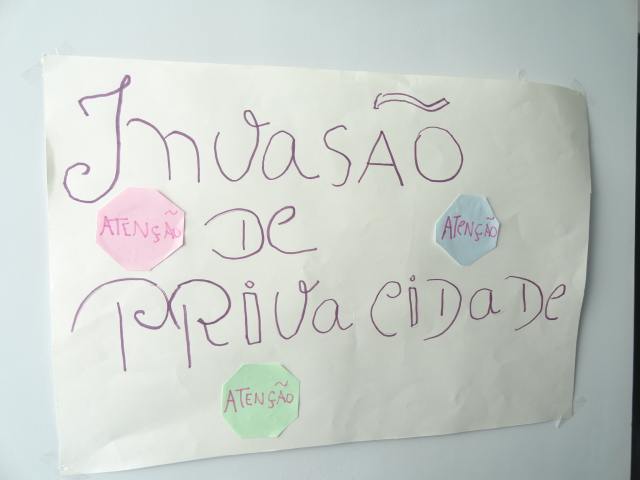 InvasÃO
ATENÇÃO
DE
ATENÇÃO
PRiVaCiDaDe
ATENÇÃO